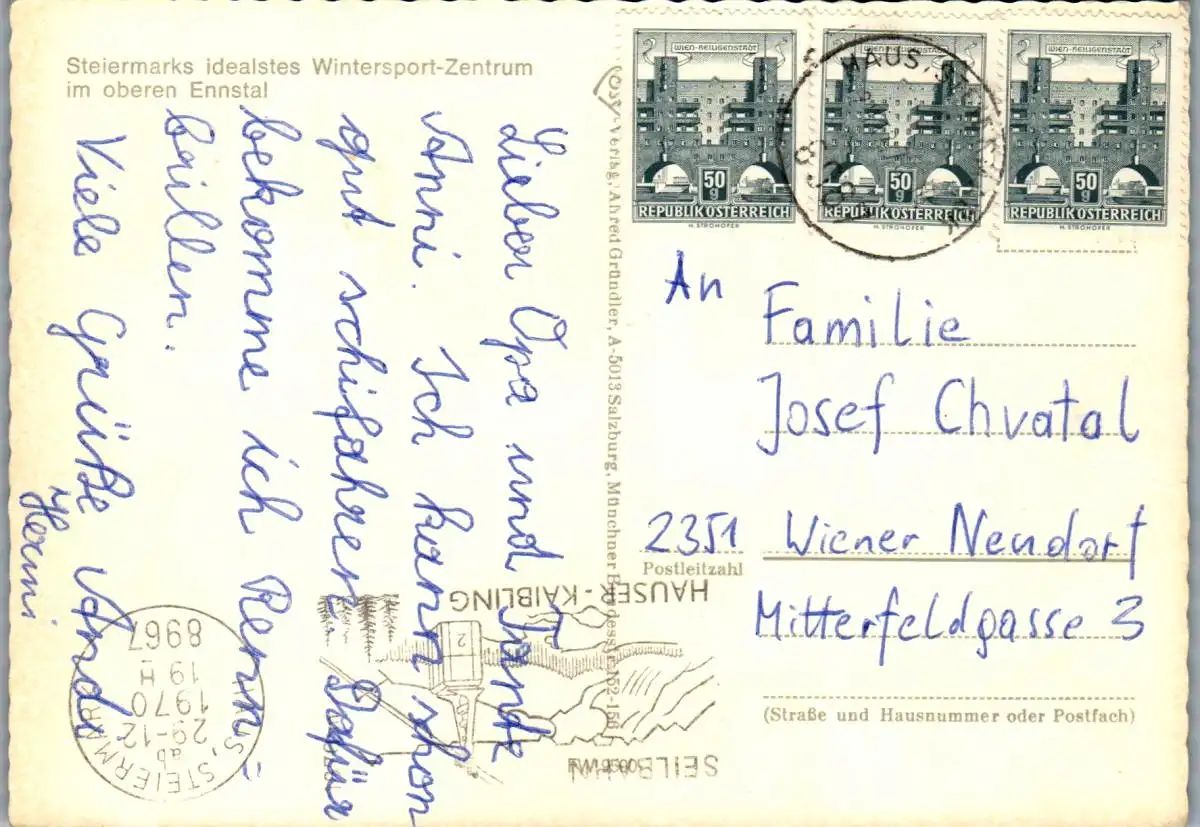 Steiermarks idealstes Wintersport-Zentrum
im oberen Ennstal
Lieber Opa und Tante
Anni. Ich kann schon
gut schifahren. Dafür
bekomme ich Renn-
brillen.
Viele Grüße
WIEN-HEILIGENSTADT
50
g
REPUBLIK ÖSTERREICH
H. STROHOFER
WIEN-HEILIGENSTADT
50
g
REPUBLIK ÖSTERREICH
H. STROHOFER
WIEN-HEILIGENSTADT
50
g
REPUBLIK ÖSTERREICH
H. STROHOFER
An
Familie
Josef Chvatal
2351 Wiener Neudorf
Postleitzahl
Mitterfeldgasse 3
(Straße und Hausnummer oder Postfach)
HAUSER-KAIBLING
2
SEILBAHN
8967
19 H
1970
29-12
ab
HAUS, STEIERMARK